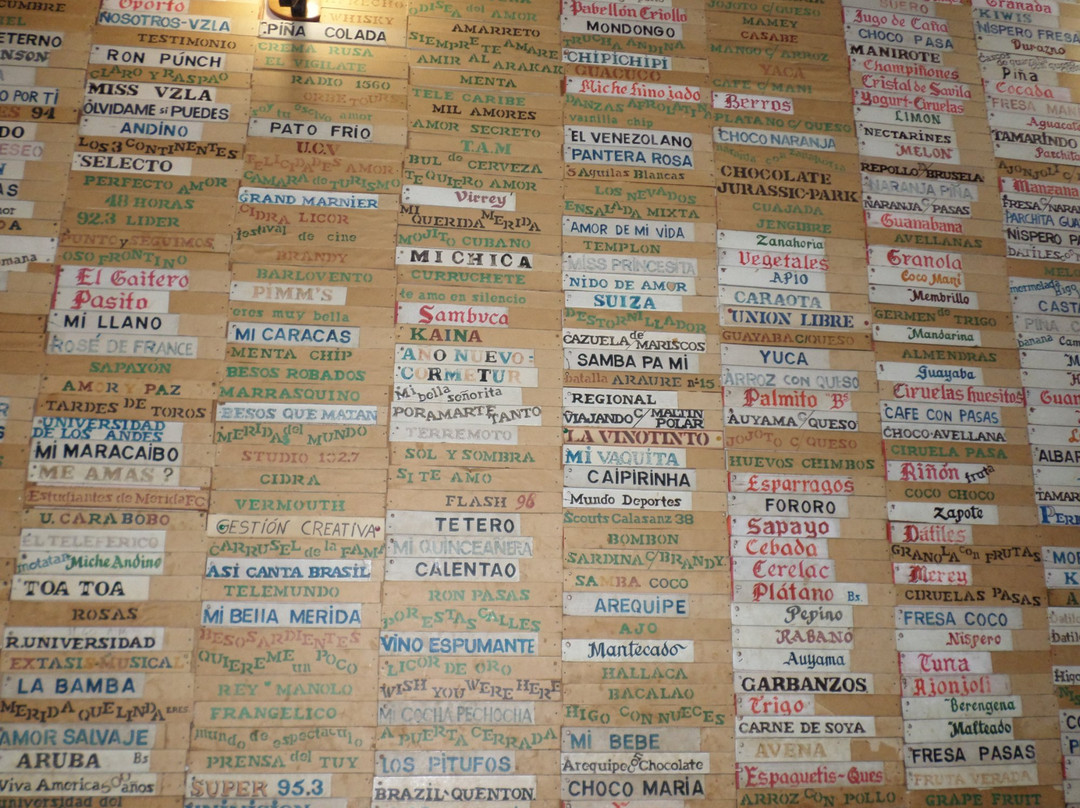 Oporto
NOSOTROS-VZLA
TESTIMONIO
RON PÚNCH
CLARO Y RASPAO
MISS VZLA
OLVIDAME si PUEDES
ANDINO
LOS 3 CONTINENTES
SELECTO
PERFECTO AMOR
48 HORAS
92.3 LIDER
PUNTO y SEGUIMOS
OSO FRONTINO
El Gaitero
Pasito
MI LLANO
ROSÉ DE FRANCE
SAPAYON
AMOR Y PAZ
TARDES DE TOROS
UNIVERSIDAD
DE LOS ANDES
MI MARACAIBO
ME AMAS ?
Estudiantes de Merida FC
U. CARABOBO
EL TELEFERICO
motatan Miche Andino
TOA TOA
ROSAS
R.UNIVERSIDAD
EXTASIS MUSICAL
LA BAMBA
MERIDA QUE LINDA ERES
AMOR SALVAJE
ARUBA Bs
Viva America 500 años
universidad del
WHISKY
PIÑA COLADA
CREMA RUSA
EL VIGILATE
RADIO 1560
PATO FRIO
U.C.V
FELICIDADES AMOR
CAMARA de TURISMO
GRAND MARNIER
CIDRA LICOR
festival de cine
BRANDY
BARLOVENTO
PIMM'S
oros muy bella
MI CARACAS
MENTA CHIP
BESOS ROBADOS
MARRASQUINO
BESOS QUE MATAN
MERIDA del MUNDO
STUDIO 102.7
CIDRA
VERMOUTH
GESTIÓN CREATIVA
CARRUSEL de la FAMA
ASI CANTA BRASIL
TELEMUNDO
MI BELLA MERIDA
BESOS ARDIENTES
QUIEREME un POCO
REY MANOLO
FRANGELICO
mundo de espectaculo
PRENSA del TUY
SUPER 95.3
ODISEA del AMOR
AMARRETO
SIEMPRE TE AMARE
AMIR AL ARAKAK
MENTA
TELE CARIBE
MIL AMORES
AMOR SECRETO
T.A.M
BUL de CERVEZA
TE QUIERO AMOR
Virrey
MI QUERIDA MERIDA
MOJITO CUBANO
MI CHICA
CURRUCHETE
te amo en silencio
Sambuca
KAINA
AÑO NUEVO
CORMETUR
Mi bella señorita
PORAMARTE TANTO
TERREMOTO
SOL Y SOMBRA
SI TE AMO
FLASH 96
TETERO
MI QUINCEAÑERA
CALENTAO
RON PASAS
POR ESTAS CALLES
VINO ESPUMANTE
LICOR DE ORO
WISH YOU WERE HERE
MI COCHA PECHOCHA
A PUERTA CERRADA
LOS PITUFOS
BRAZIL QUENTON
Pabellón Criollo
MONDONGO
TRUCHA ANDINA
CHIPICHIPI
GUACUCO
Miche hinojado
vainilla chip
EL VENEZOLANO
PANTERA ROSA
3 Aguilas Blancas
LOS NEVADOS
ENSALADA MIXTA
AMOR DE MI VIDA
TEMPLON
MISS PRINCESITA
NIDO DE AMOR
SUIZA
DESTORNILLADOR
CAZUELA de MARISCOS
SAMBA PA MI
batalla ARAURE nº15
REGIONAL
VIAJANDO C/ MALTIN POLAR
LA VINOTINTO
MI VAQUITA
CAIPIRINHA
Mundo Deportes
Scouts Calasanz 38
BOMBON
SARDINA C/BRANDY
SAMBA COCO
AREQUIPE
AJO
Mantecado
HALLACA
BACALAO
HIGO CON NUECES
MI BEBE
Arequipe Chocolate
CHOCO MARIA
JOJOTO C/QUESO
MAMEY
CASABE
MANGO C/ARROZ
YACA
CAFE C/MANI
Berros
PLATANO C/QUESO
CHOCO NARANJA
CHOCOLATE
JURASSIC-PARK
CUAJADA
JENGIBRE
Zanahoria
Vegetales
APIO
CARAOTA
UNION LIBRE
GUAYABA C/QUESO
YUCA
ARROZ CON QUESO
Palmito Bs
AUYAMA C/QUESO
JOJOTO C QUESO
HUEVOS CHIMBOS
Esparragos
FORORO
Sapayo
Cebada
Cerelac
Plátano Bs.
Pepino
RABANO
Auyama
GARBANZOS
Trigo
CARNE DE SOYA
AVENA
Espaguetis-Ques
ARROZ CON POLLO
SUERO
Jugo de Caña
CHOCO PASA
MANIROTE
Champiñones
Cristal de Savila
Yogurt-Ciruelas
LIMON
NECTARINES
MELON
REPOLLO BRUSELA
NARANJA PIÑA
NARANJA C/PASAS
Guanabana
AVELLANAS
Granola
Coco Mani
Membrillo
GERMEN de TRIGO
Mandarina
ALMENDRAS
Guayaba
Ciruelas huesitos
CAFE CON PASAS
CHOCO-AVELLANA
CIRUELA PASA
Riñón fruta
COCO CHOCO
Zapote
Dátiles
GRANOLA con FRUTAS
Merey
CIRUELAS PASAS
FRESA COCO
Nispero
Tuna
Ajonjoli
Berengena
Malteado
FRESA PASAS
FRUTA VERADA
GRAPE FRUIT
Granada
KIWIS
NISPERO FRESA
Durazno
Piña
Cocada
Aguacate
TAMARINDO
Parchita
Manzana
PARCHITA
NISPERO